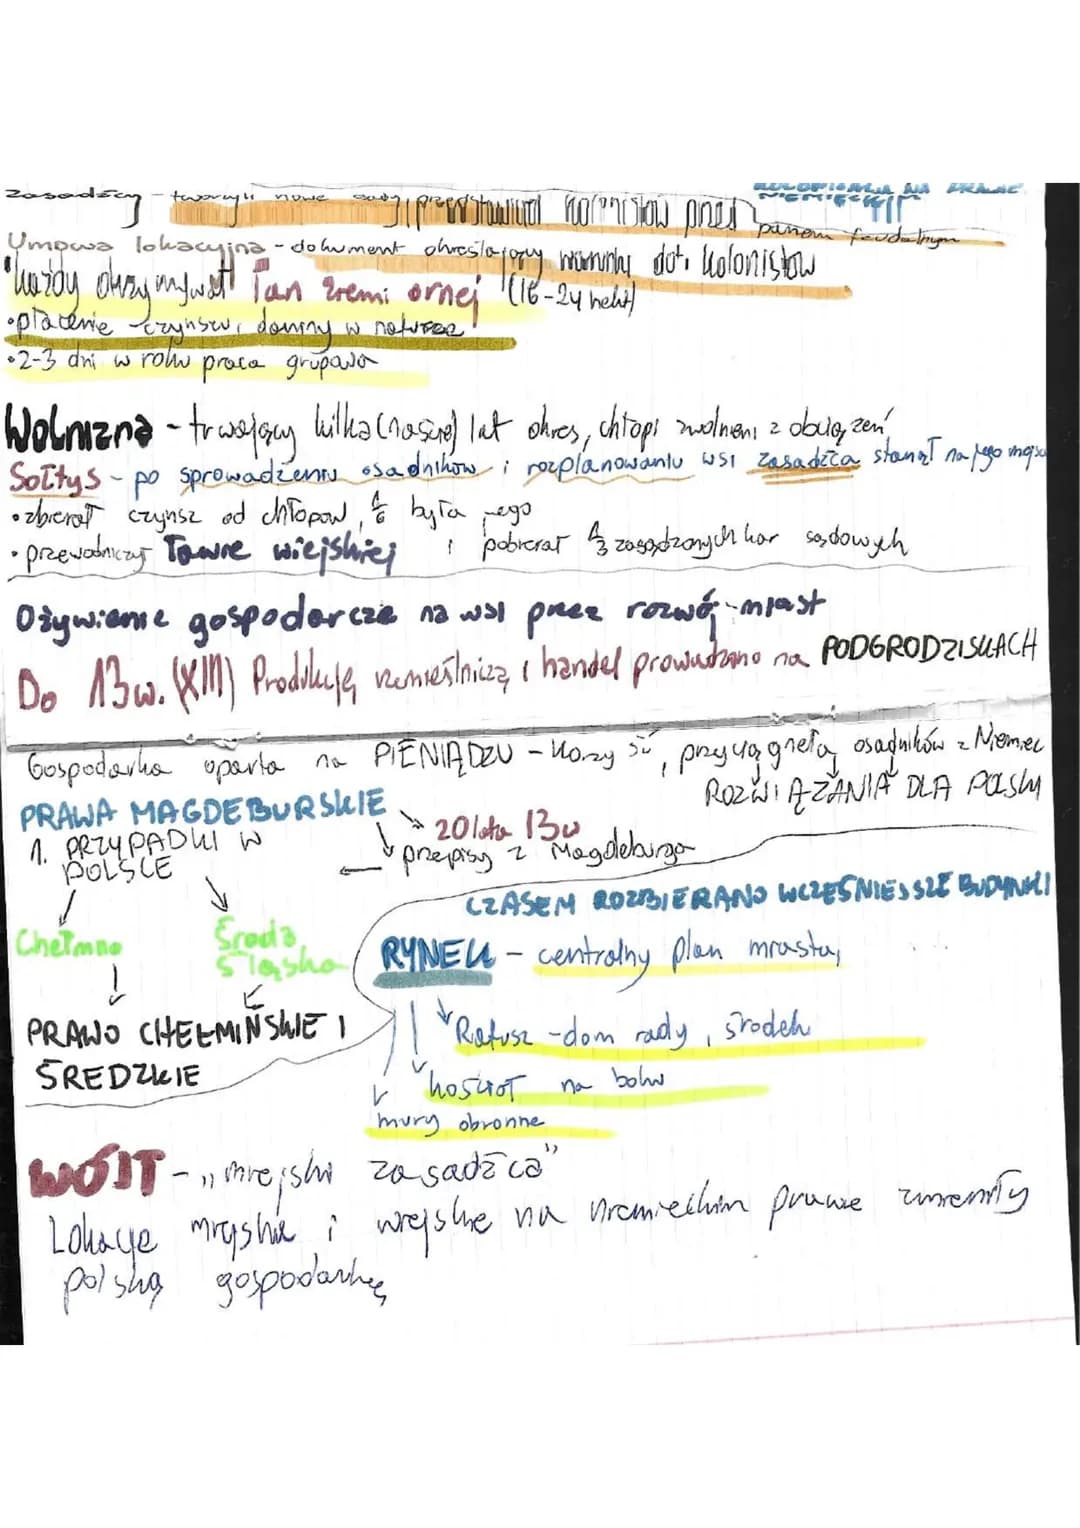 KOLONIZACJA NA PRAWIE
NIEMIECKIM
zasadźcy - tworzyli nowe osady, przedstawiciel kolonistów przed panem feudalnym
Umowa lokacyjna - dokument określający warunki dot. kolonistów
"każdy otrzymywał Łan ziemi ornej (16-24 hekt)
•płacenie czynszu, daniny w naturze
•2-3 dni w roku praca grupowa
Wolnizna - trwający kilka(naście) lat okres, chłopi zwolnieni z obciążeń
Sołtys - po sprowadzeniu osadników i rozplanowaniu wsi zasadźca stanął na jego miejscu
•zbierał czynsz od chłopów, 1/6 była jego
•przewodniczył Ławie wiejskiej i pobierał 1/3 zasądzonych kar sądowych
Ożywienie gospodarcze na wsi przez rozwój miast
Do 13w. (XIII) Produkcję rzemieślniczą i handel prowadzono na PODGRODZISKACH
Gospodarka oparta na PIENIĄDZU - , przyciągnęła osadników z Niemiec
ROZWIĄZANIA DLA POLSKI
PRAWA MAGDEBURSKIE
20 lata 13w
przepisy z Magdeburga
1. PRZYPADKI W
POLSCE
CZASEM ROZBIERANO WCZEŚNIEJSZE BUDYNKI
Chełmno
Środa
Śląska
RYNEK - centralny plan miasta,
PRAWO CHEŁMIŃSKIE I
ŚREDZKIE
Ratusz - dom rady, środek
kościół na boku
mury obronne
WÓJT - „miejski zasadźca"
Lokacje miejskie i wiejskie na niemieckim prawie zmieniły
polską gospodarkę